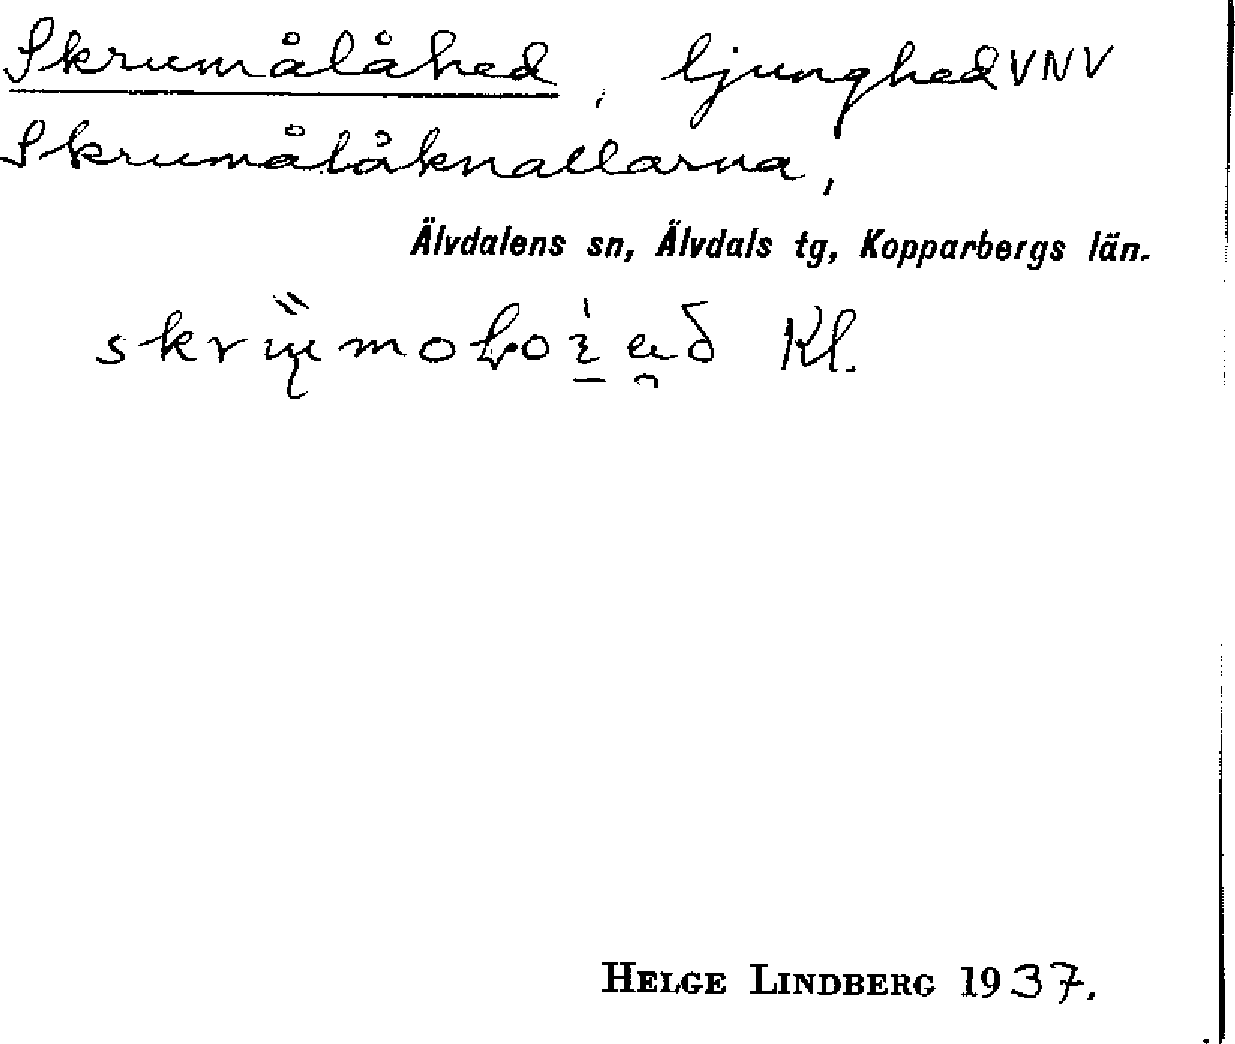 Skrumålåhed, ljunghed VNV
Skrumålåknallarna,
Älvdalens sn, Älvdals tg, Kopparbergs län.
Kl.
HELGE LINDBERG 1937.